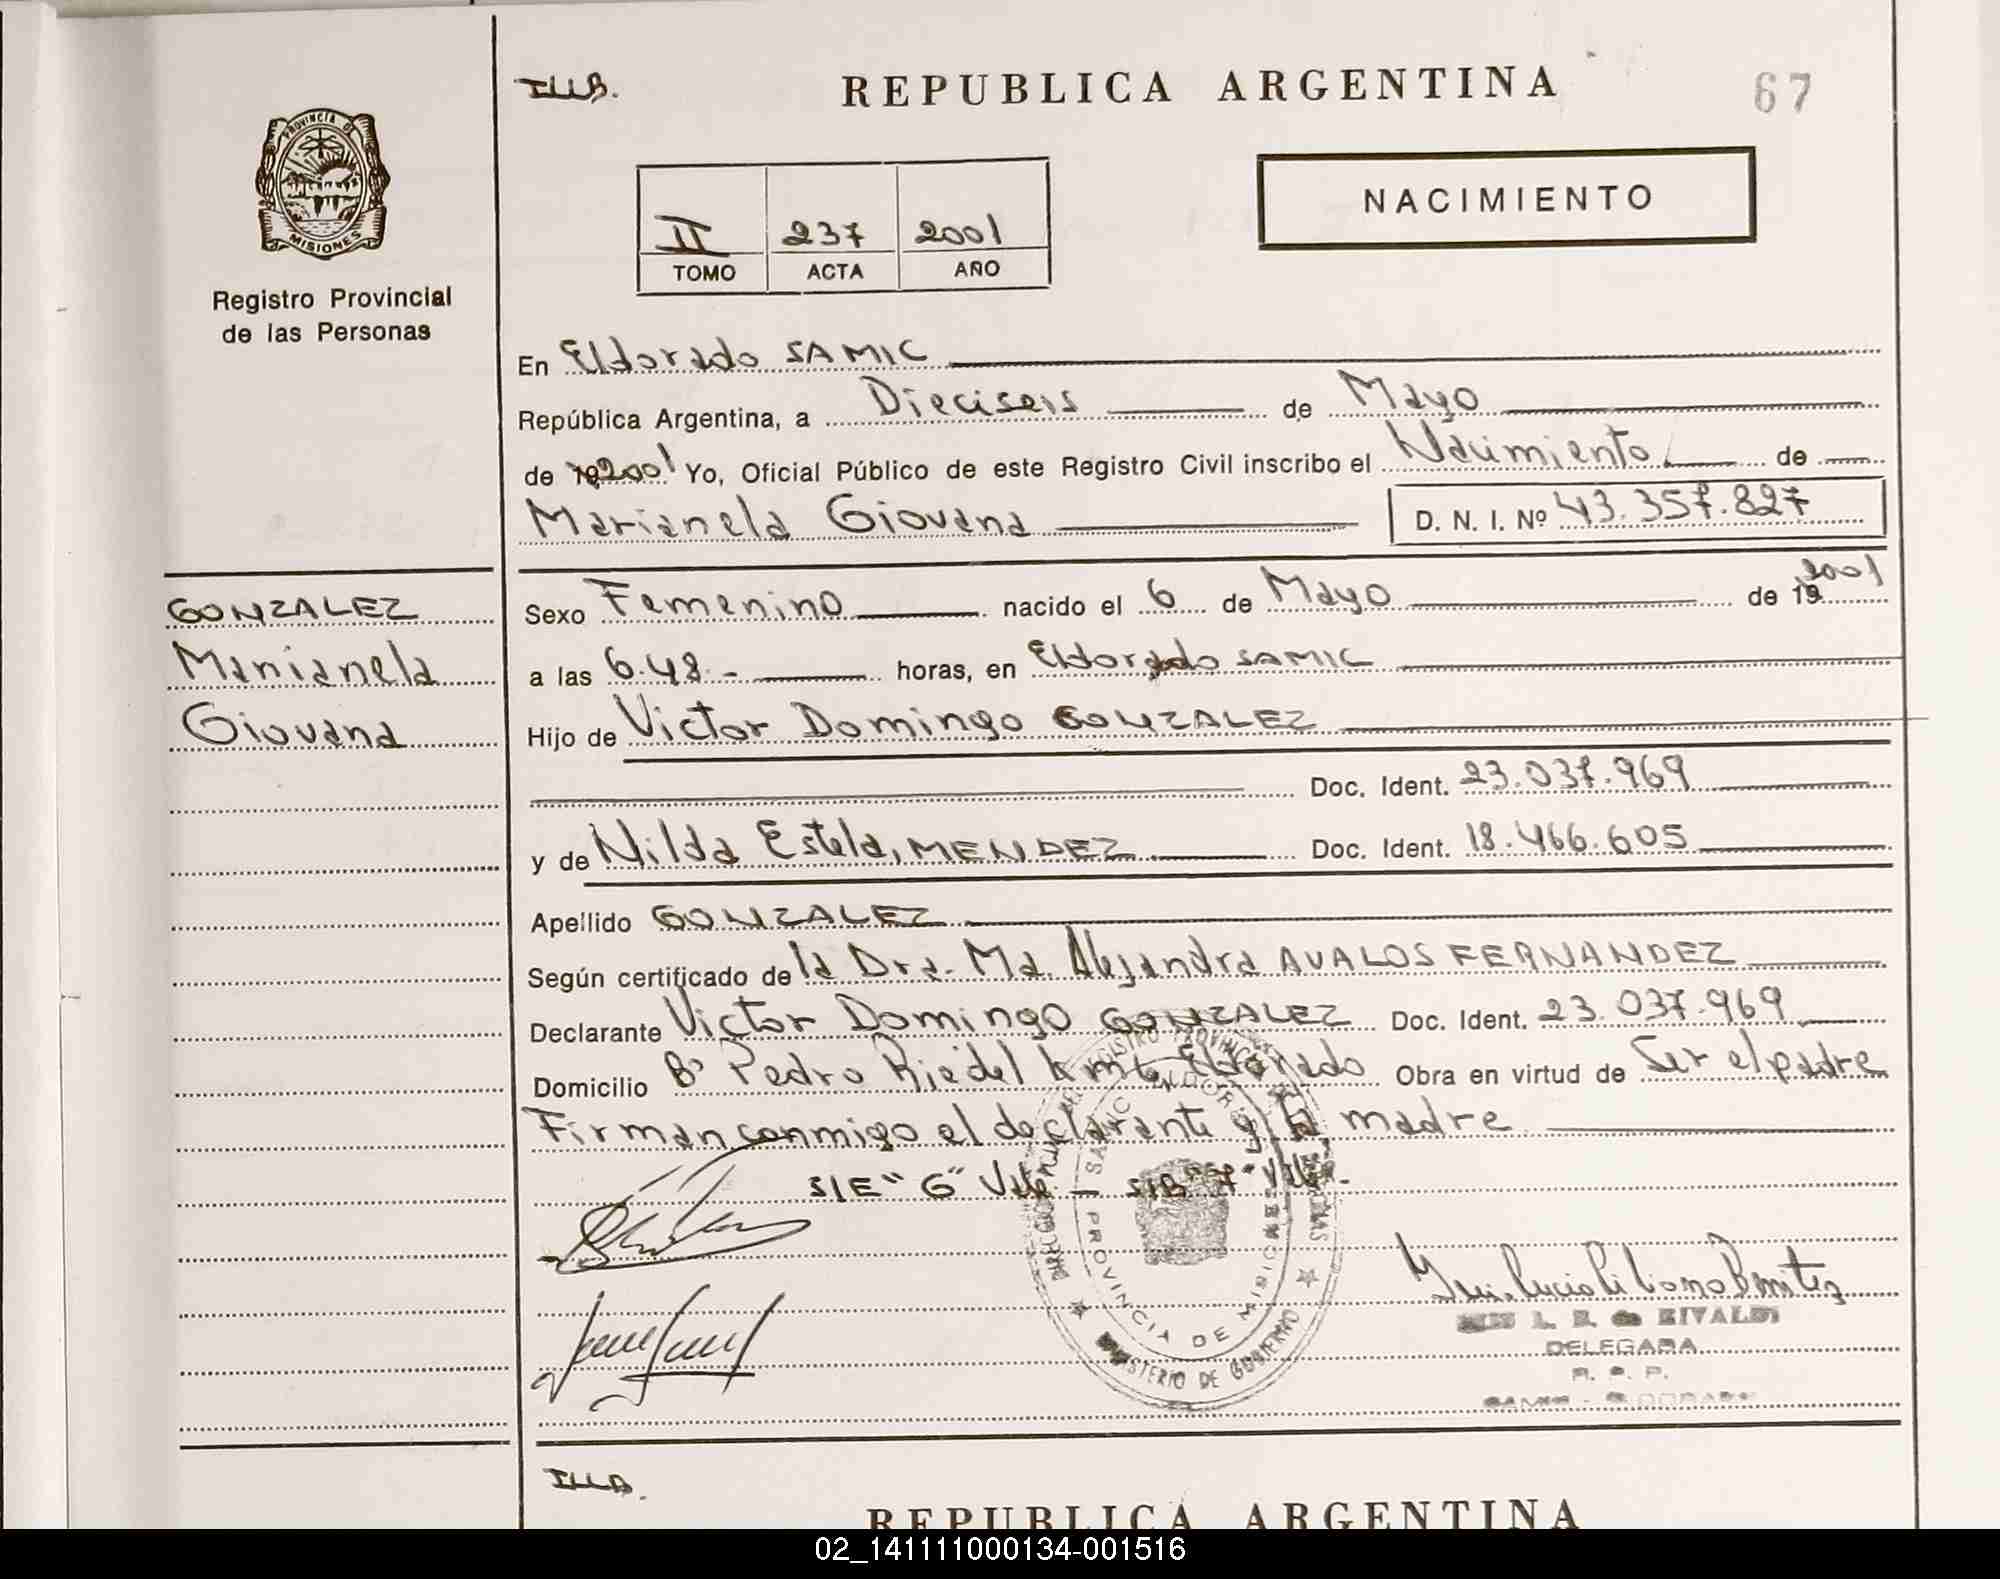 ILLB.
REPUBLICA ARGENTINA
67
PROVINCIA DE
MISIONES
Registro Provincial
de las Personas
NACIMIENTO
II 237 2001
TOMO ACTA AÑO
En Eldorado SAMIC
República Argentina, a Dieciseis de Mayo
de 19 2001 Yo, Oficial Público de este Registro Civil inscribo el Nacimiento de
Marianela Giovana D. N. I. Nº 43.357.827
GONZALEZ
Marianela
Giovana
Sexo Femenino nacido el 6 de Mayo de 19 2001
a las 6.48.- horas, en Eldorado SAMIC
Hijo de Victor Domingo GONZALEZ
Doc. Ident. 23.037.969
y de Nilda Estela, MENDEZ Doc. Ident. 18.466.605
Apellido GONZALEZ
Según certificado de la Dra. Ma. Alejandra AVALOS FERNANDEZ
Declarante Victor Domingo GONZALEZ Doc. Ident. 23.037.969
Domicilio Bº Pedro Riedel Km 6, Eldorado Obra en virtud de Ser el padre
Firman conmigo el declarante y la madre
S/E "G" Vale - S/B "7" Vale.-
PROVINCIA DE MISIONES
MINISTERIO DE GOBIERNO
L. B. de RIVALDI
DELEGADA
R. P. P.
SAMIC - ELDORADO
ILLB.
REPUBLICA ARGENTINA
02_141111000134-001516